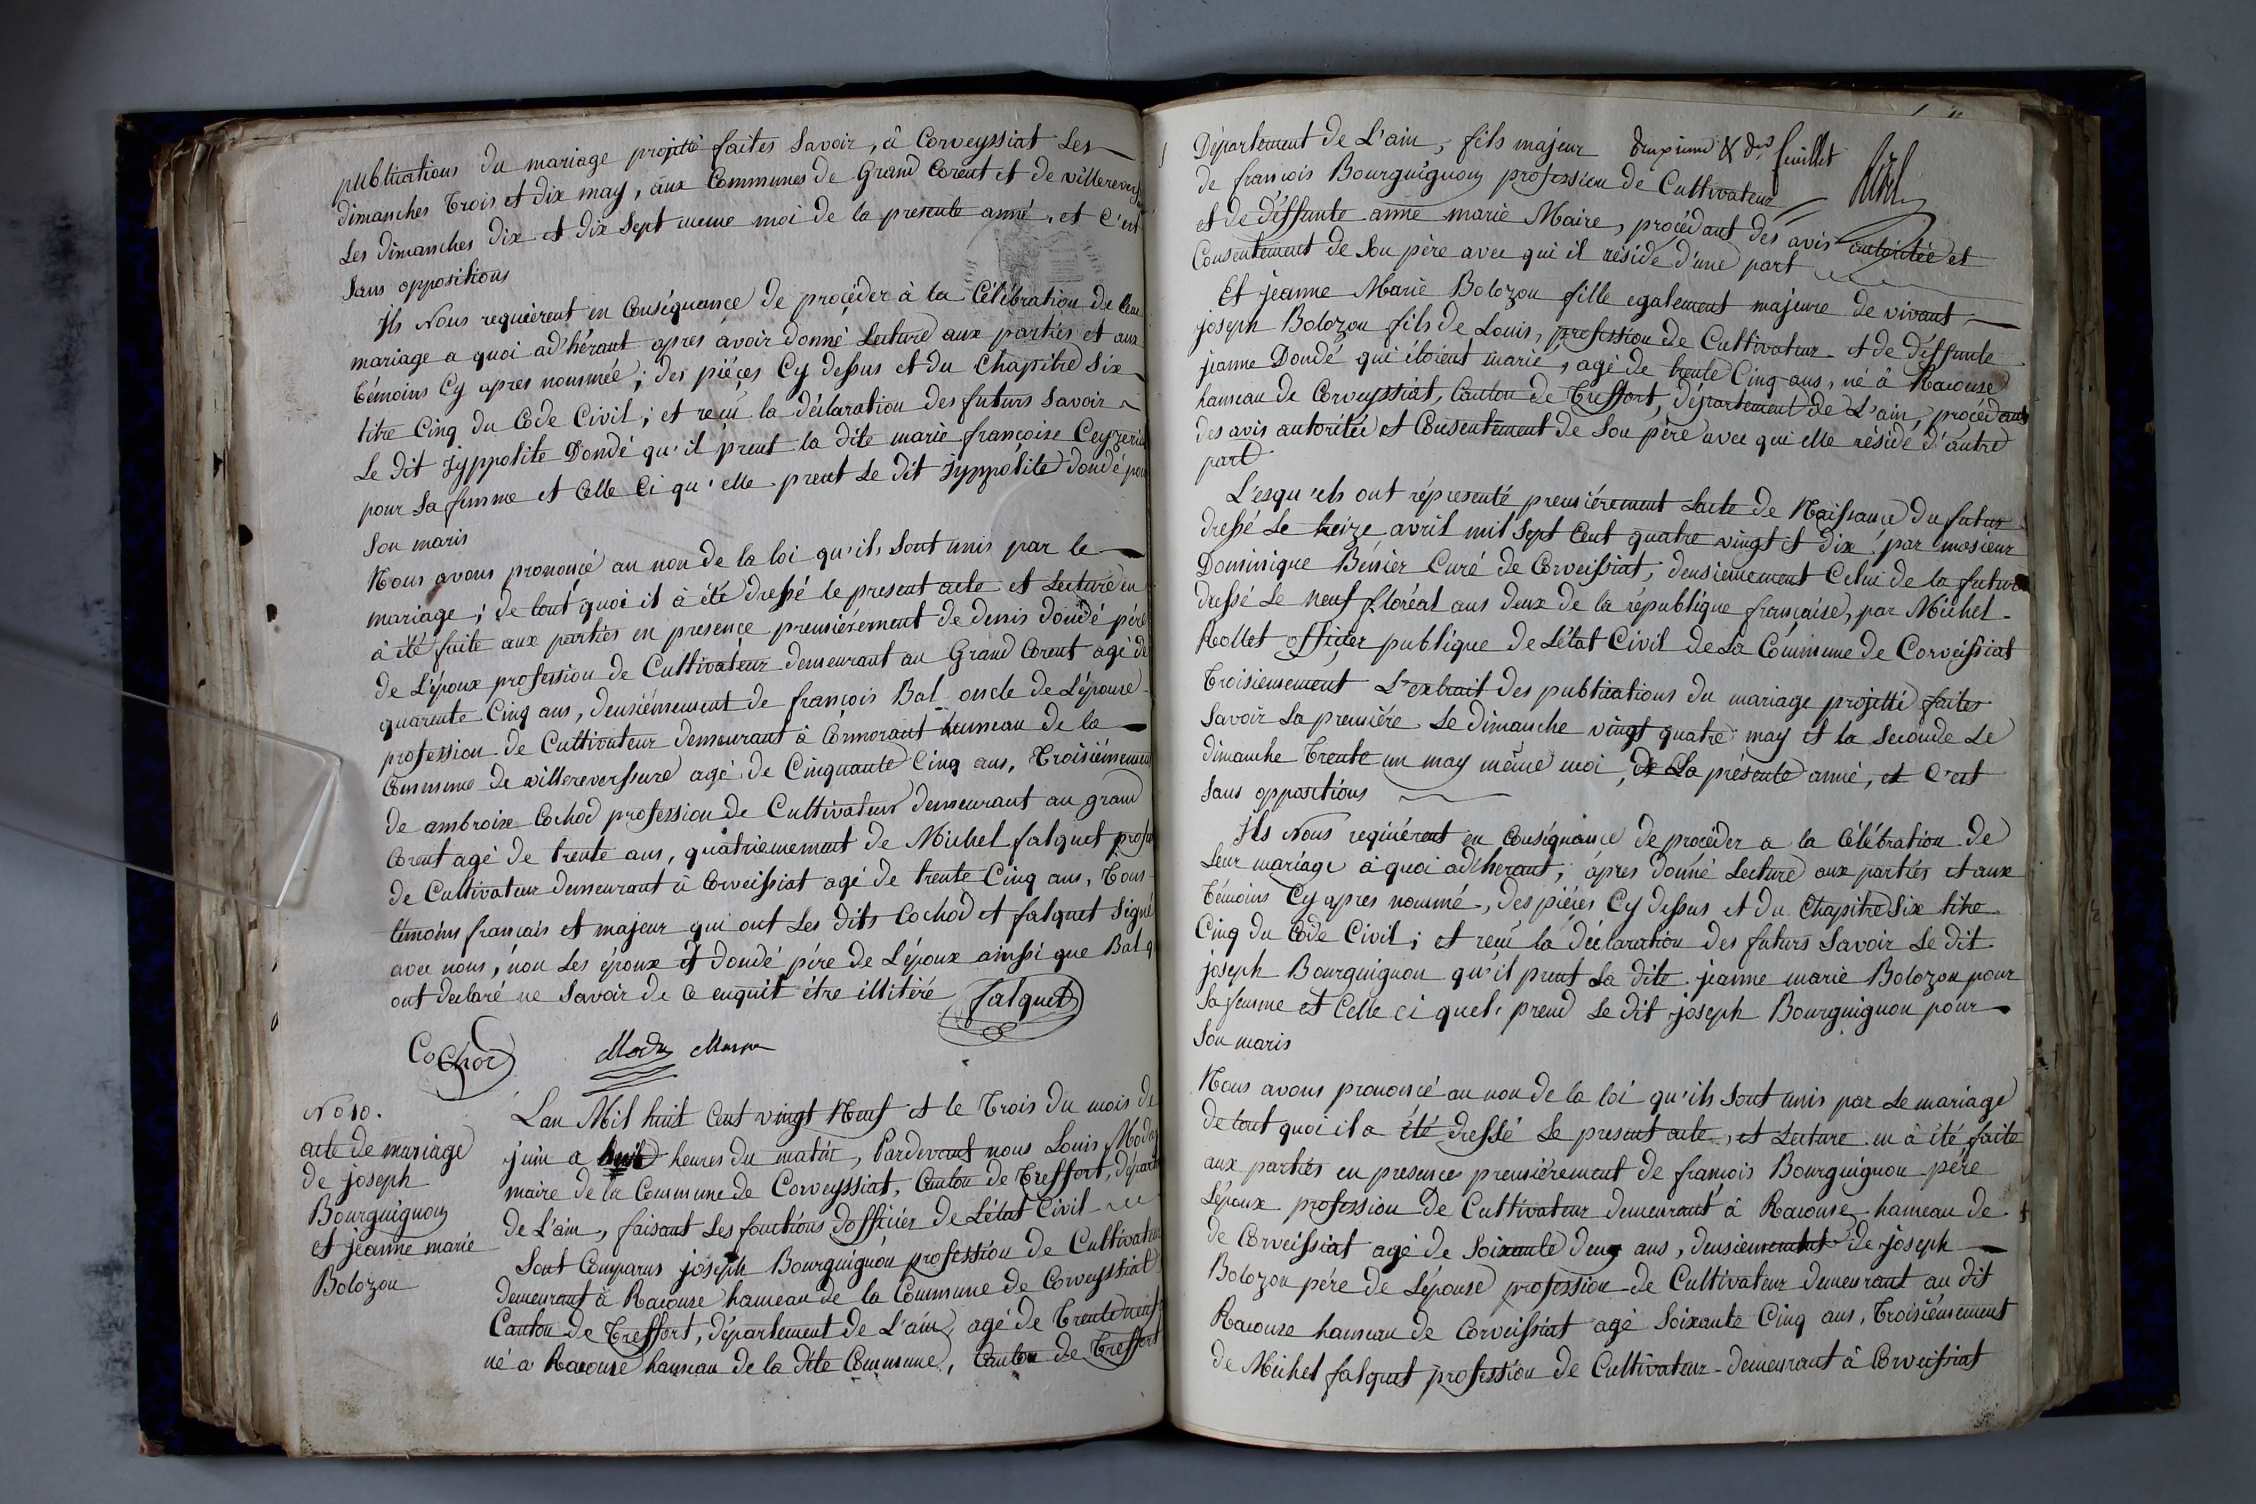 publications du mariage projetté faites Savoir, à Corveyssiat Les
dimanches Trois et dix may, aux Communes de Grand Corent et de villerevers
Les dimanches dix et dix Sept meme moi de la presente anné, et c'est
Sans oppositions
Ils Nous requièrent en Conséquance de procéder à la Célébration de leur
mariage a quoi ad'hérant apres avoir donné Lecture aux partiés et aux
témoins Cy apres nommée; des piéçes Cy dessus et du Chapitre Six
titre Cinq du Code Civil; et reçu la déclaration des futurs Savoir
Le dit Jyppolite Dondé qu'il prent la dite marie françoise Ceyzeria
pour Sa femme et Celle Ci qu'elle prent Le dit Jyppolite dondé pour
Son maris
Nous avons prononcé au non de la loi qu'ils Sont unis par le
mariage; de tout quoi il à été dressé le present acte et Lecture en
à été faite aux partiés en presençe premiérement de denis dondé pére
de L'époux profession de Cultivateur demeurant au Grand Corent agé de
quarente Cinq ans, deusiémement de françois Bal oncle de L'épouse
profession de Cultivateur demeurant à Cormorant hameau de la
Commune de villereverssure agé de Cinquante Cinq ans, Troisiémement
de ambroise Cochod profession de Cultivateur demeurant au grand
Corent agé de trente ans, quatriemement de Michel falquet profe
de Cultivateur demeurant à Corveissiat agé de trente Cinq ans, Tous
témoins francais et majeur qui ont Les dits Cochod et falquet Signé
avec nous, non Les époux et dondé pére de L'époux ainssi que Bal q
ont declaré ne Savoir de Ce enquit être illitéré
falquet
Cochod
No 10.
acte de mariage
de joseph
Bourguignon
et jeanne marie
Bolozon
Lan Mil huit Cent vingt Neuf et le Trois du mois de
juin a huit heures du matin, Pardevant nous Louis Moda
maire de la Commune de Corveyssiat, Canton de Treffort, départ
de L'ain, faisant Les fonctions dofficiér de L'état Civil
Sont Comparus joseph Bourguignon profession de Cultivateur
demeurant à Racouse hameau de la Commune de Corveyssiat
Canton de Treffort, département de L'ain, agé de Trente neuf
né a Racouse hameau de la dite Commune, Canton de Treffort
Département de L'ain, fils majeur
deuxieme & der feuillet
de francois Bourguignon profession de Cultivateur
et de déffunte anne marie Maire, procédant des avis autoritée et
Consentement de Son père avec qui il réside d'une part
Et jeanne Marie Bolozon fille egalement majeure de vivant
joseph Bolozon fils de Louis, profession de Cultivateur et de déffunte
jeanne Dondé qui étoient marié, agé de trente Cinq ans, né à Racouse
hameau de Corveyssiat, Canton de Treffort, département de L'ain, procédant
des avis autoritée et Consentement de Son pére avec qui elle réside d'autre
part
L'esqu'els ont répresenté premiérement Lacte de Naissance du futur
dressé Le treize avril mil Sept Cent quatre vingt et dix par mosieur
Dominique Bénier Curé de Corveissiat, deusiemement Celui de la future
dressé Le neuf floréal ans deux de la république française, par Michel
Rollet officier publique de L'état Civil de La Commune de Corveissiat
Troisiemement L'extrait des publications du mariage projetté faites
Savoir La premiére Le dimanche vingt quatre may et la Seconde Le
dimanche Trente un may même moi, de La présente anné, et C'est
Sans oppositions
Ils Nous requiérent en Conséquance de procéder a la Célébration de
Leur mariage à quoi ad'herant; ápres donné Lecture aux partiés et aux
témoins Cy apres nommé, des piéces Cy dessus et du Chapitre Six titre
Cinq du Code Civil; et reçu la déclaration des futurs Savoir Le dit
joseph Bourguignon qu'il prent La dite jeanne marie Bolozon pour
Sa femme et Celle ci quel' prend Le dit joseph Bourguignon pour
Son maris
Nous avons prononcé au non de la loi qu'ils Sont unis par Le mariage
de tout quoi il a été dressé Le present acte, et Lecture en à été faite
aux partiés en presence premiérement de françois Bourguignon pére
L'époux profession de Cultivateur demeurant à Racouse hameau de
de Corveissiat agé de Soixante deux ans, deusiemement de joseph
Bolozon pére de L'épouse profession de Cultivateur demeurant au dit
Racouse hameau de Corveissiat agé Soixante Cinq ans, Troisiémement
de Michel falquet profession de Cultivateur demeurant à Corveissiat